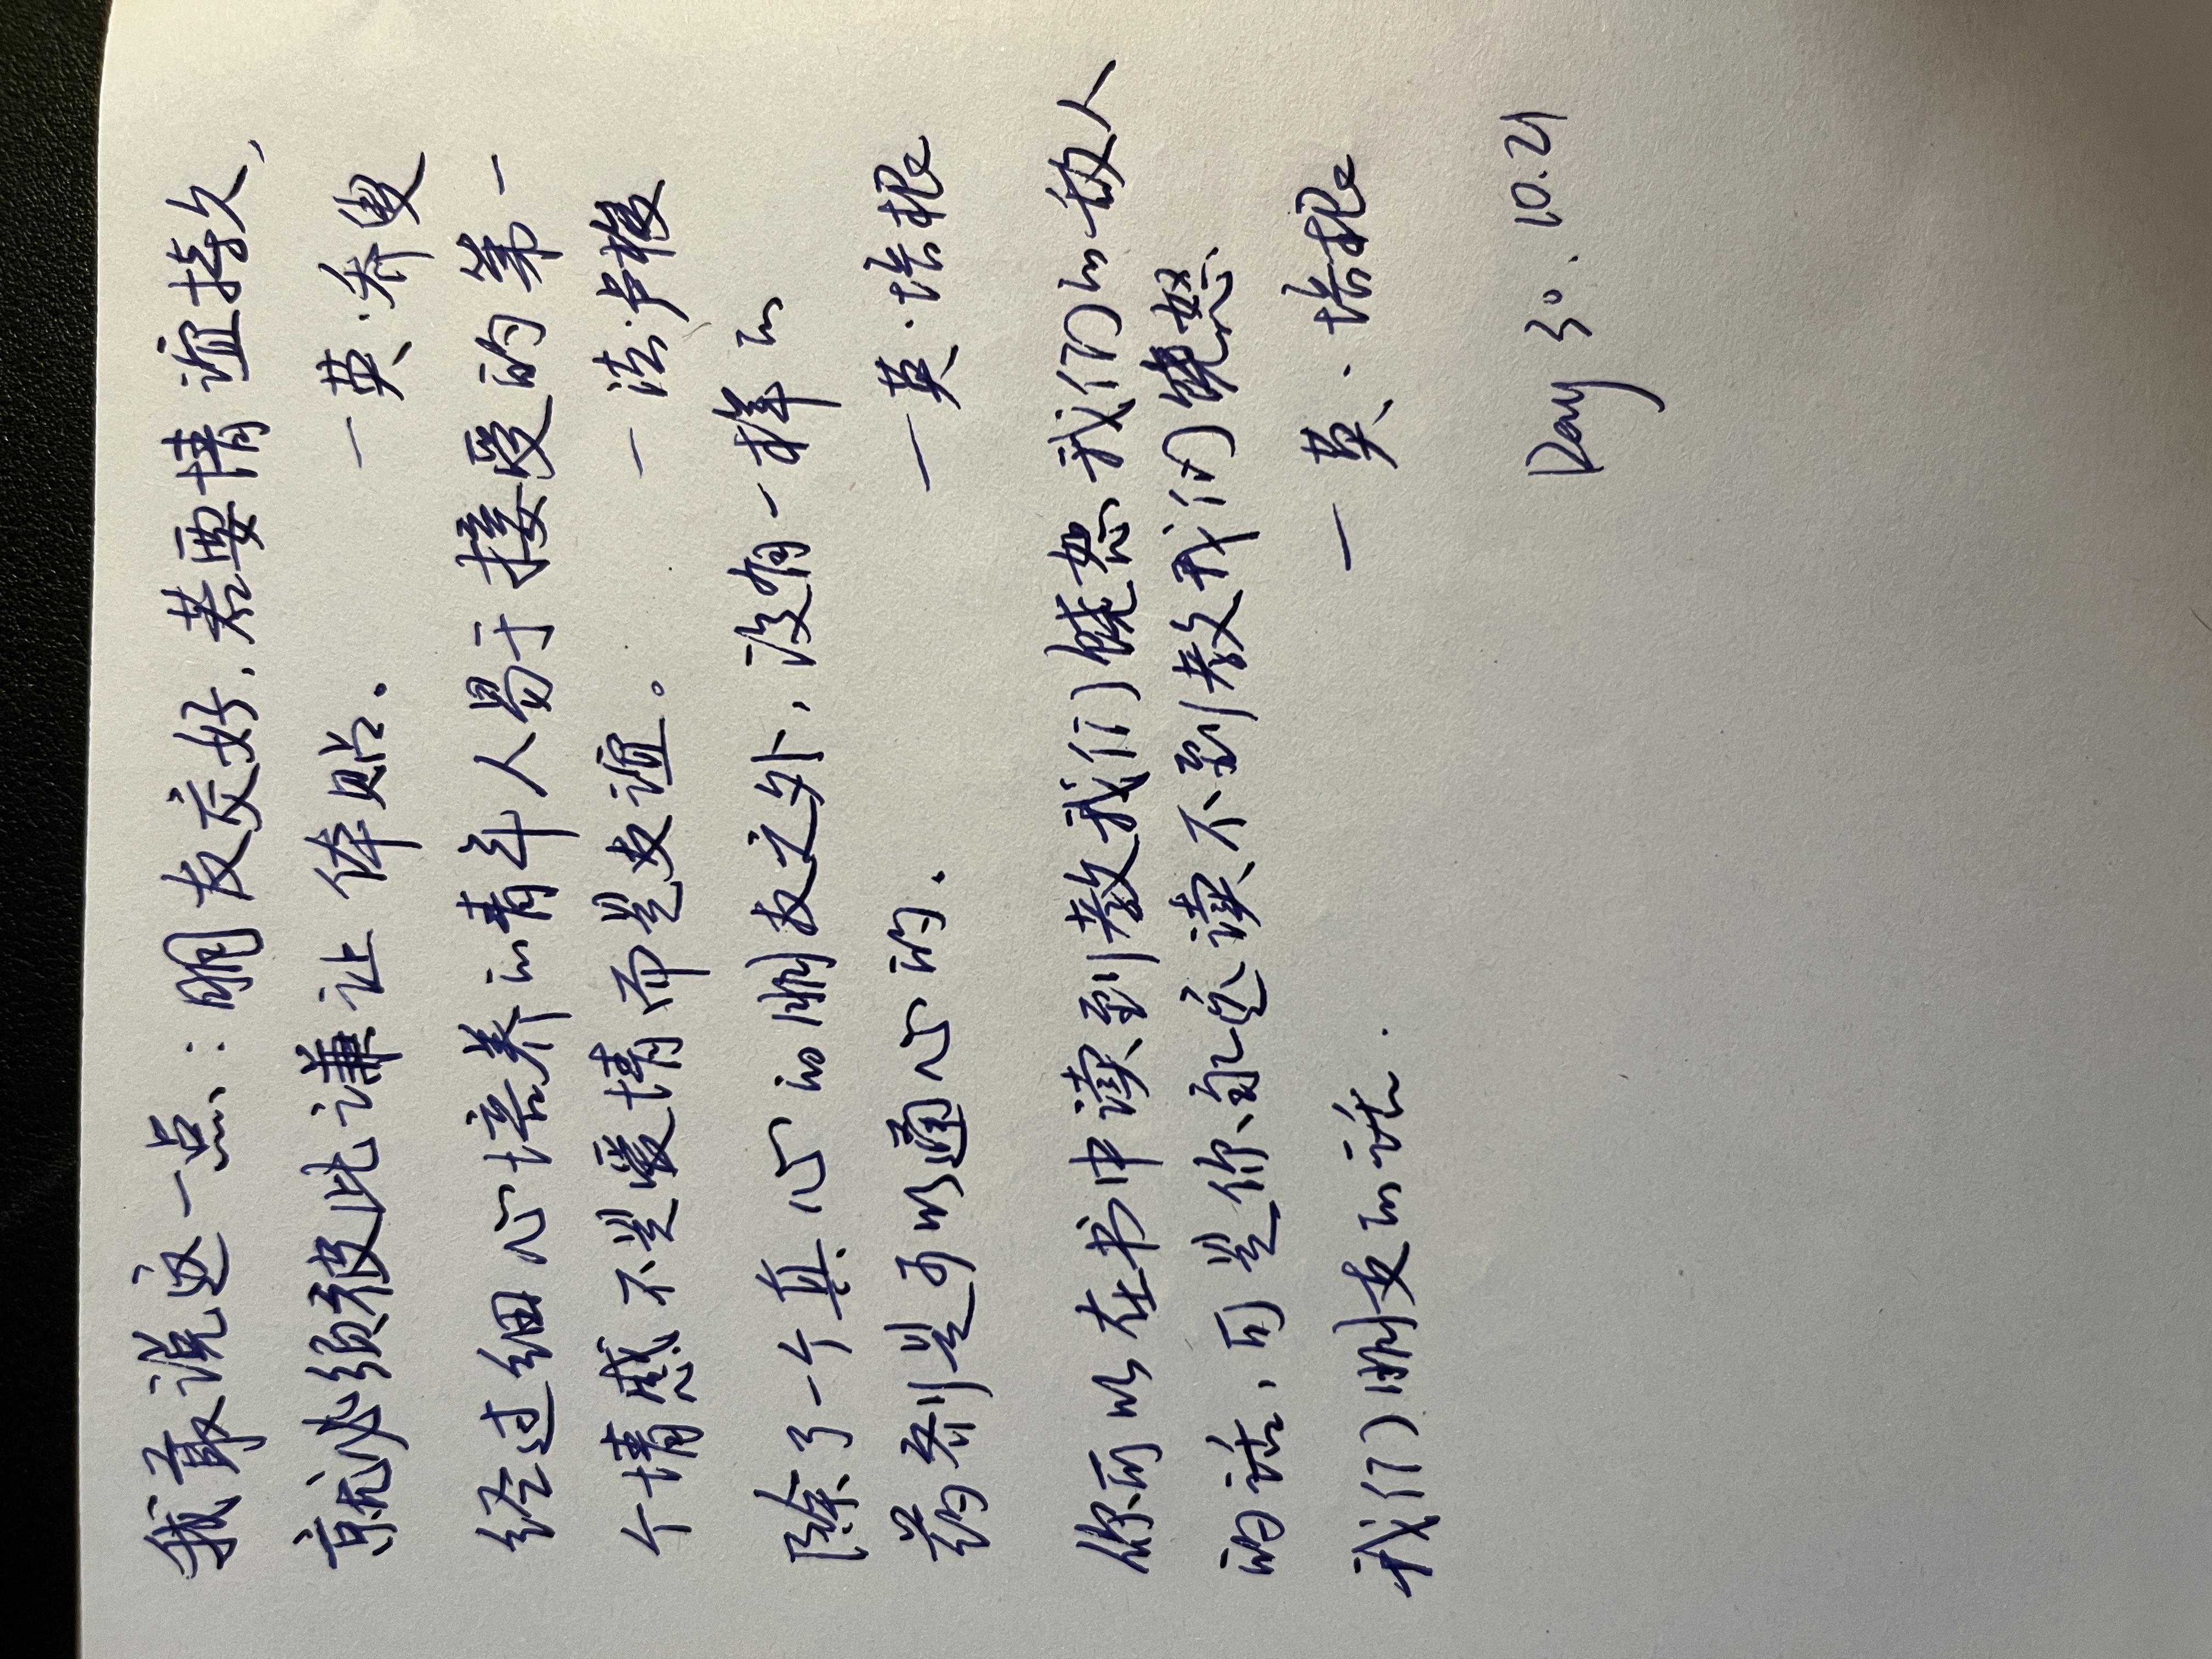 我最说这一点：朋友交好，若要情谊持久，
就必须彼此谦让体贴。 一英·乔叟
经过细心培养的青年人易于接受的第一
个情感不是爱情而是友谊。 一法·卢梭
除了一个真心的朋友之外，没有一样的
药剂是可以通心的． 一英·培根
你可以在书中读到教我们饶恕我们的敌人
的话，可是你永远读不到教我们饶恕
我们朋友的话． 一英·培根
Day 30. 10.21